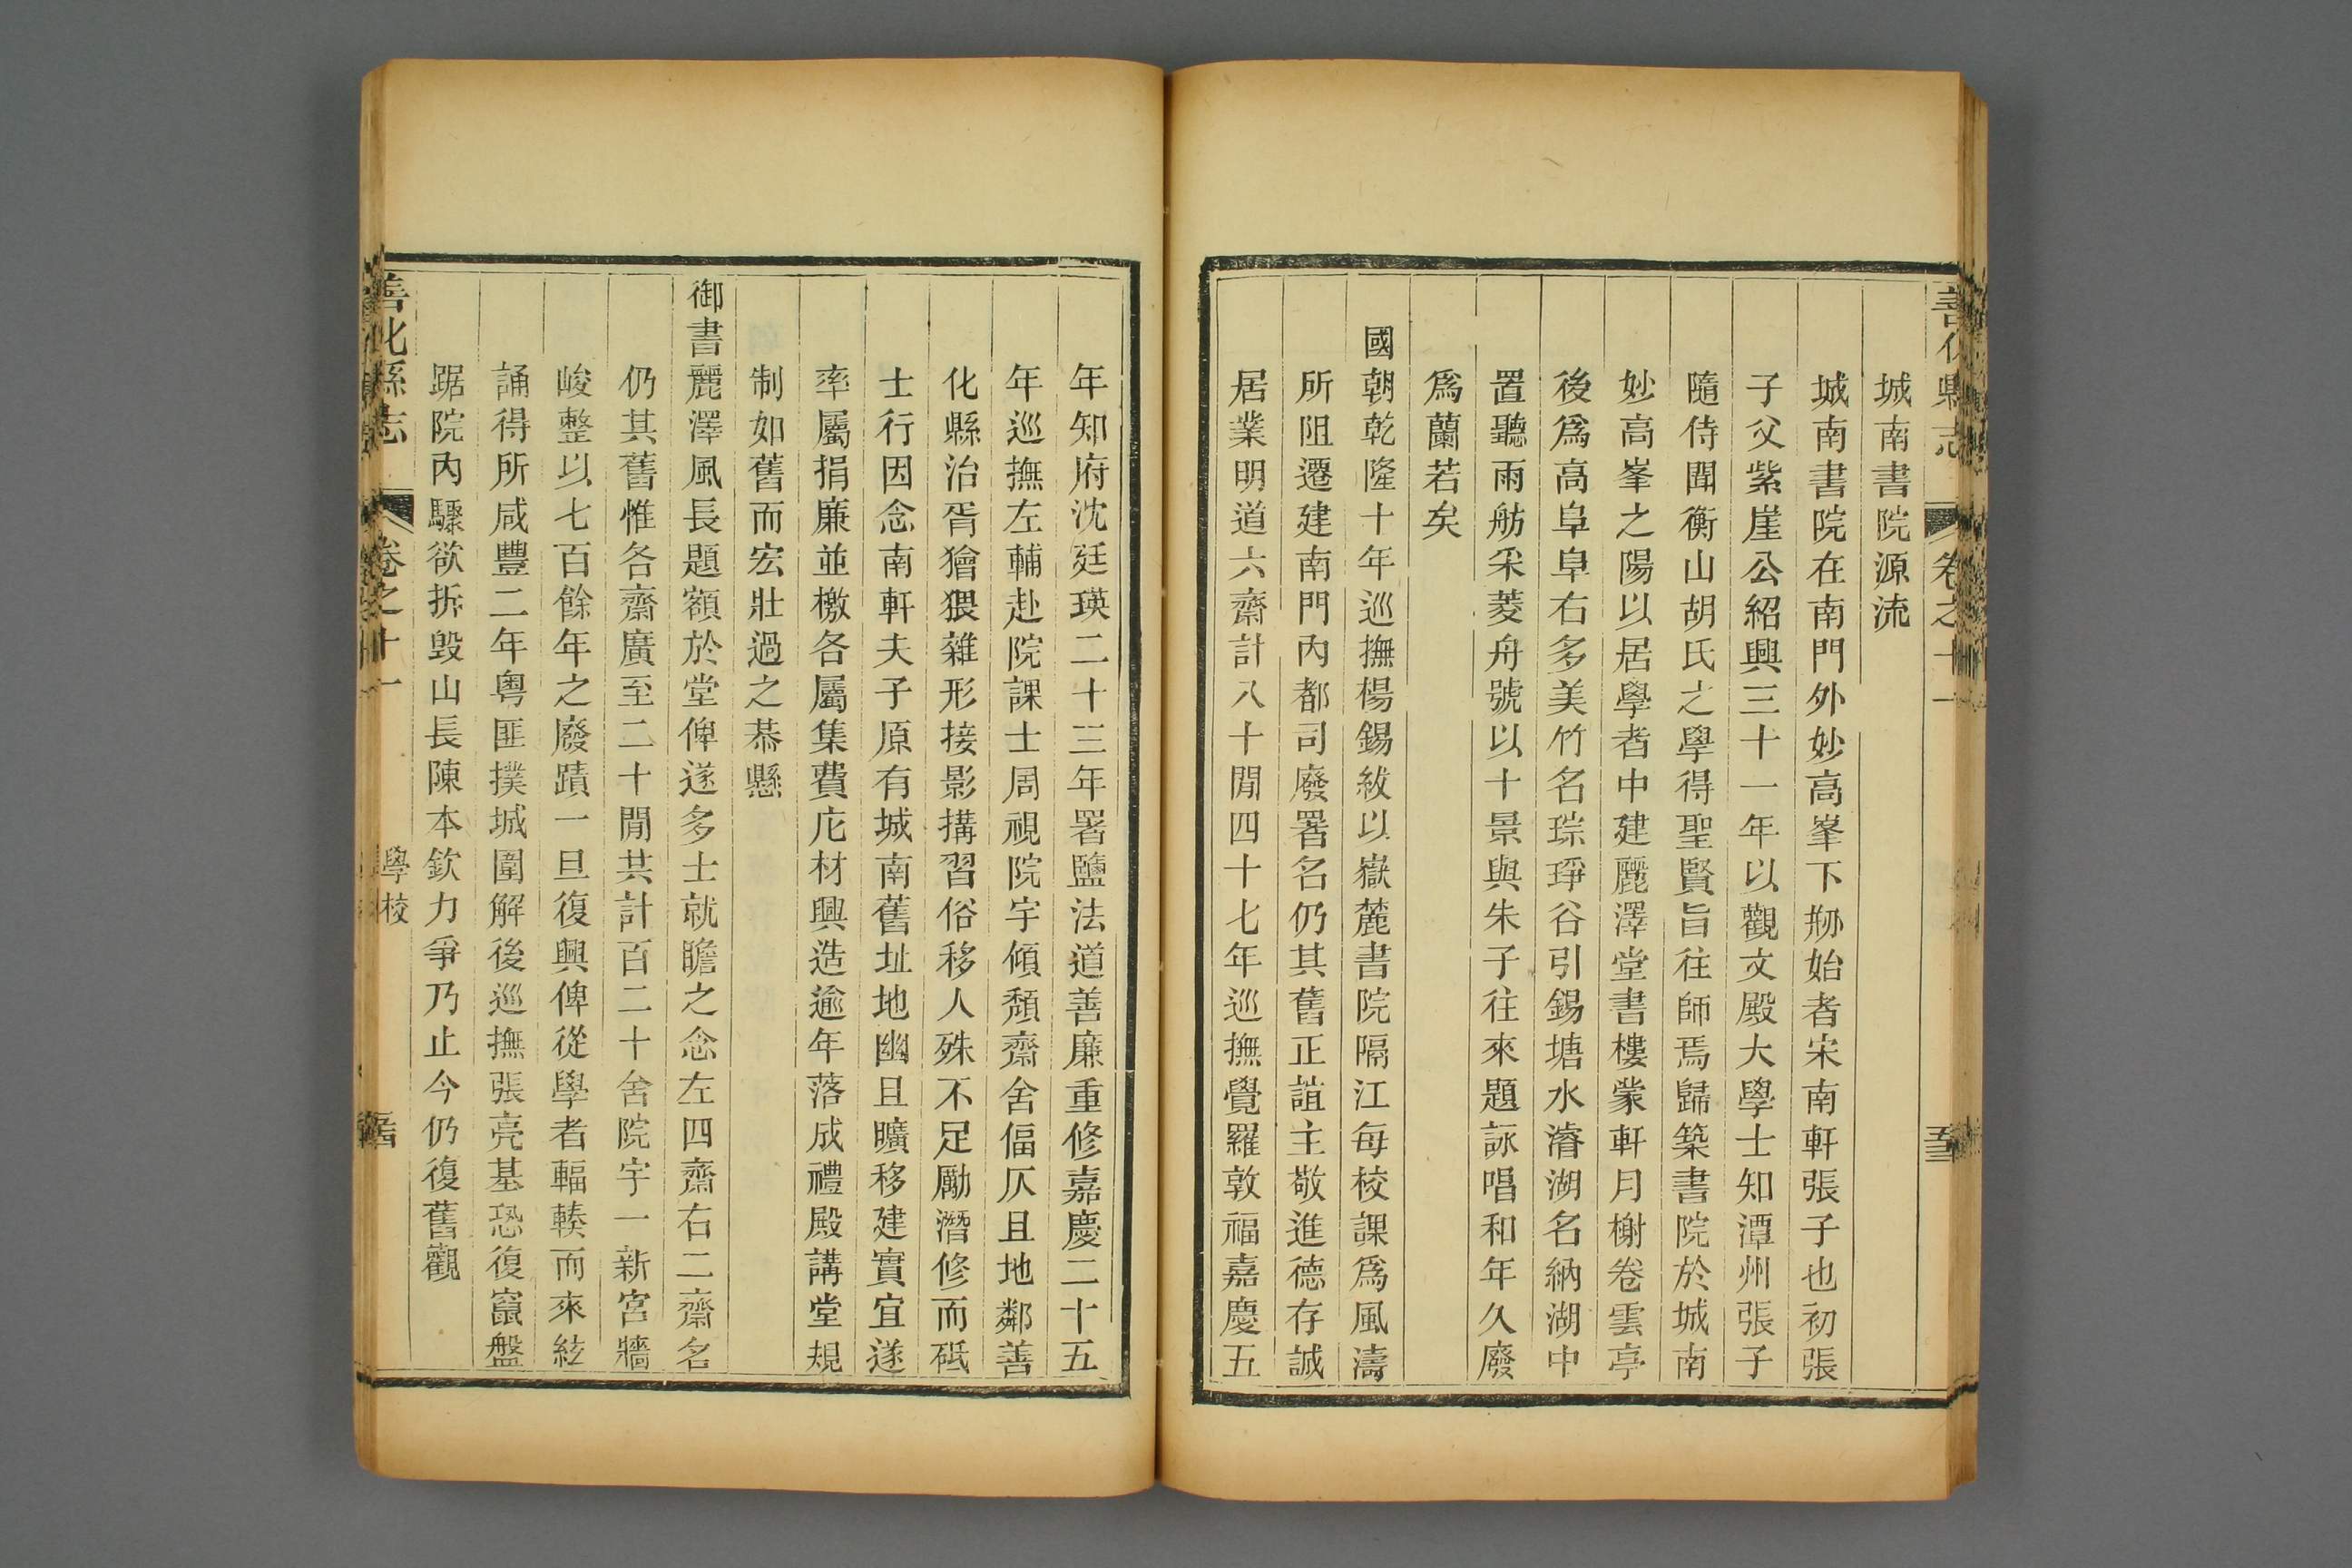 善化縣志 卷之十一
城南書院源流
城南書院在南門外妙高峯下剙始者宋南軒張子也初張
子父紫崖公紹興三十一年以觀文殿大學士知潭州張子
隨侍聞衡山胡氏之學得聖賢旨往師焉歸築書院於城南
妙高峯之陽以居學者中建麗澤堂書樓蒙軒月榭卷雲亭
後爲高阜阜右多美竹名琮琤谷引錫塘水濬湖名納湖中
置聽雨舫采菱舟號以十景與朱子往來題詠唱和年久廢
爲蘭若矣
國朝乾隆十年巡撫楊錫紱以嶽麓書院隔江每校課爲風濤
所阻遷建南門內都司廢署名仍其舊正誼主敬進德存誠
居業明道六齋計八十間四十七年巡撫覺羅敦福嘉慶五
年知府沈廷瑛二十三年署鹽法道善廉重修嘉慶二十五
年巡撫左輔赴院課士周視院宇傾頹齋舍偪仄且地鄰善
化縣治胥獪猥雜形接影搆習俗移人殊不足勵潛修而砥
士行因念南軒夫子原有城南舊址地幽且曠移建實宜遂
率屬捐廉並檄各屬集費庀材興造逾年落成禮殿講堂規
制如舊而宏壯過之恭懸
御書麗澤風長題額於堂俾遂多士就瞻之念左四齋右二齋名
仍其舊惟各齋廣至二十間共計百二十舍院宇一新宮牆
峻整以七百餘年之廢蹟一旦復興俾從學者輻輳而來絃
誦得所咸豐二年粵匪撲城圍解後巡撫張亮基恐復竄盤
踞院內驟欲拆毀山長陳本欽力爭乃止今仍復舊觀
善化縣志 卷之十一 學校